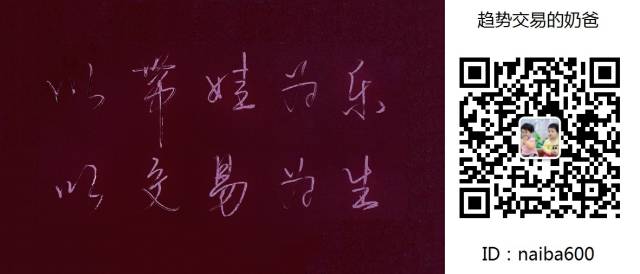 以带娃为乐
以交易为生
趋势交易的奶爸
ID：naiba600